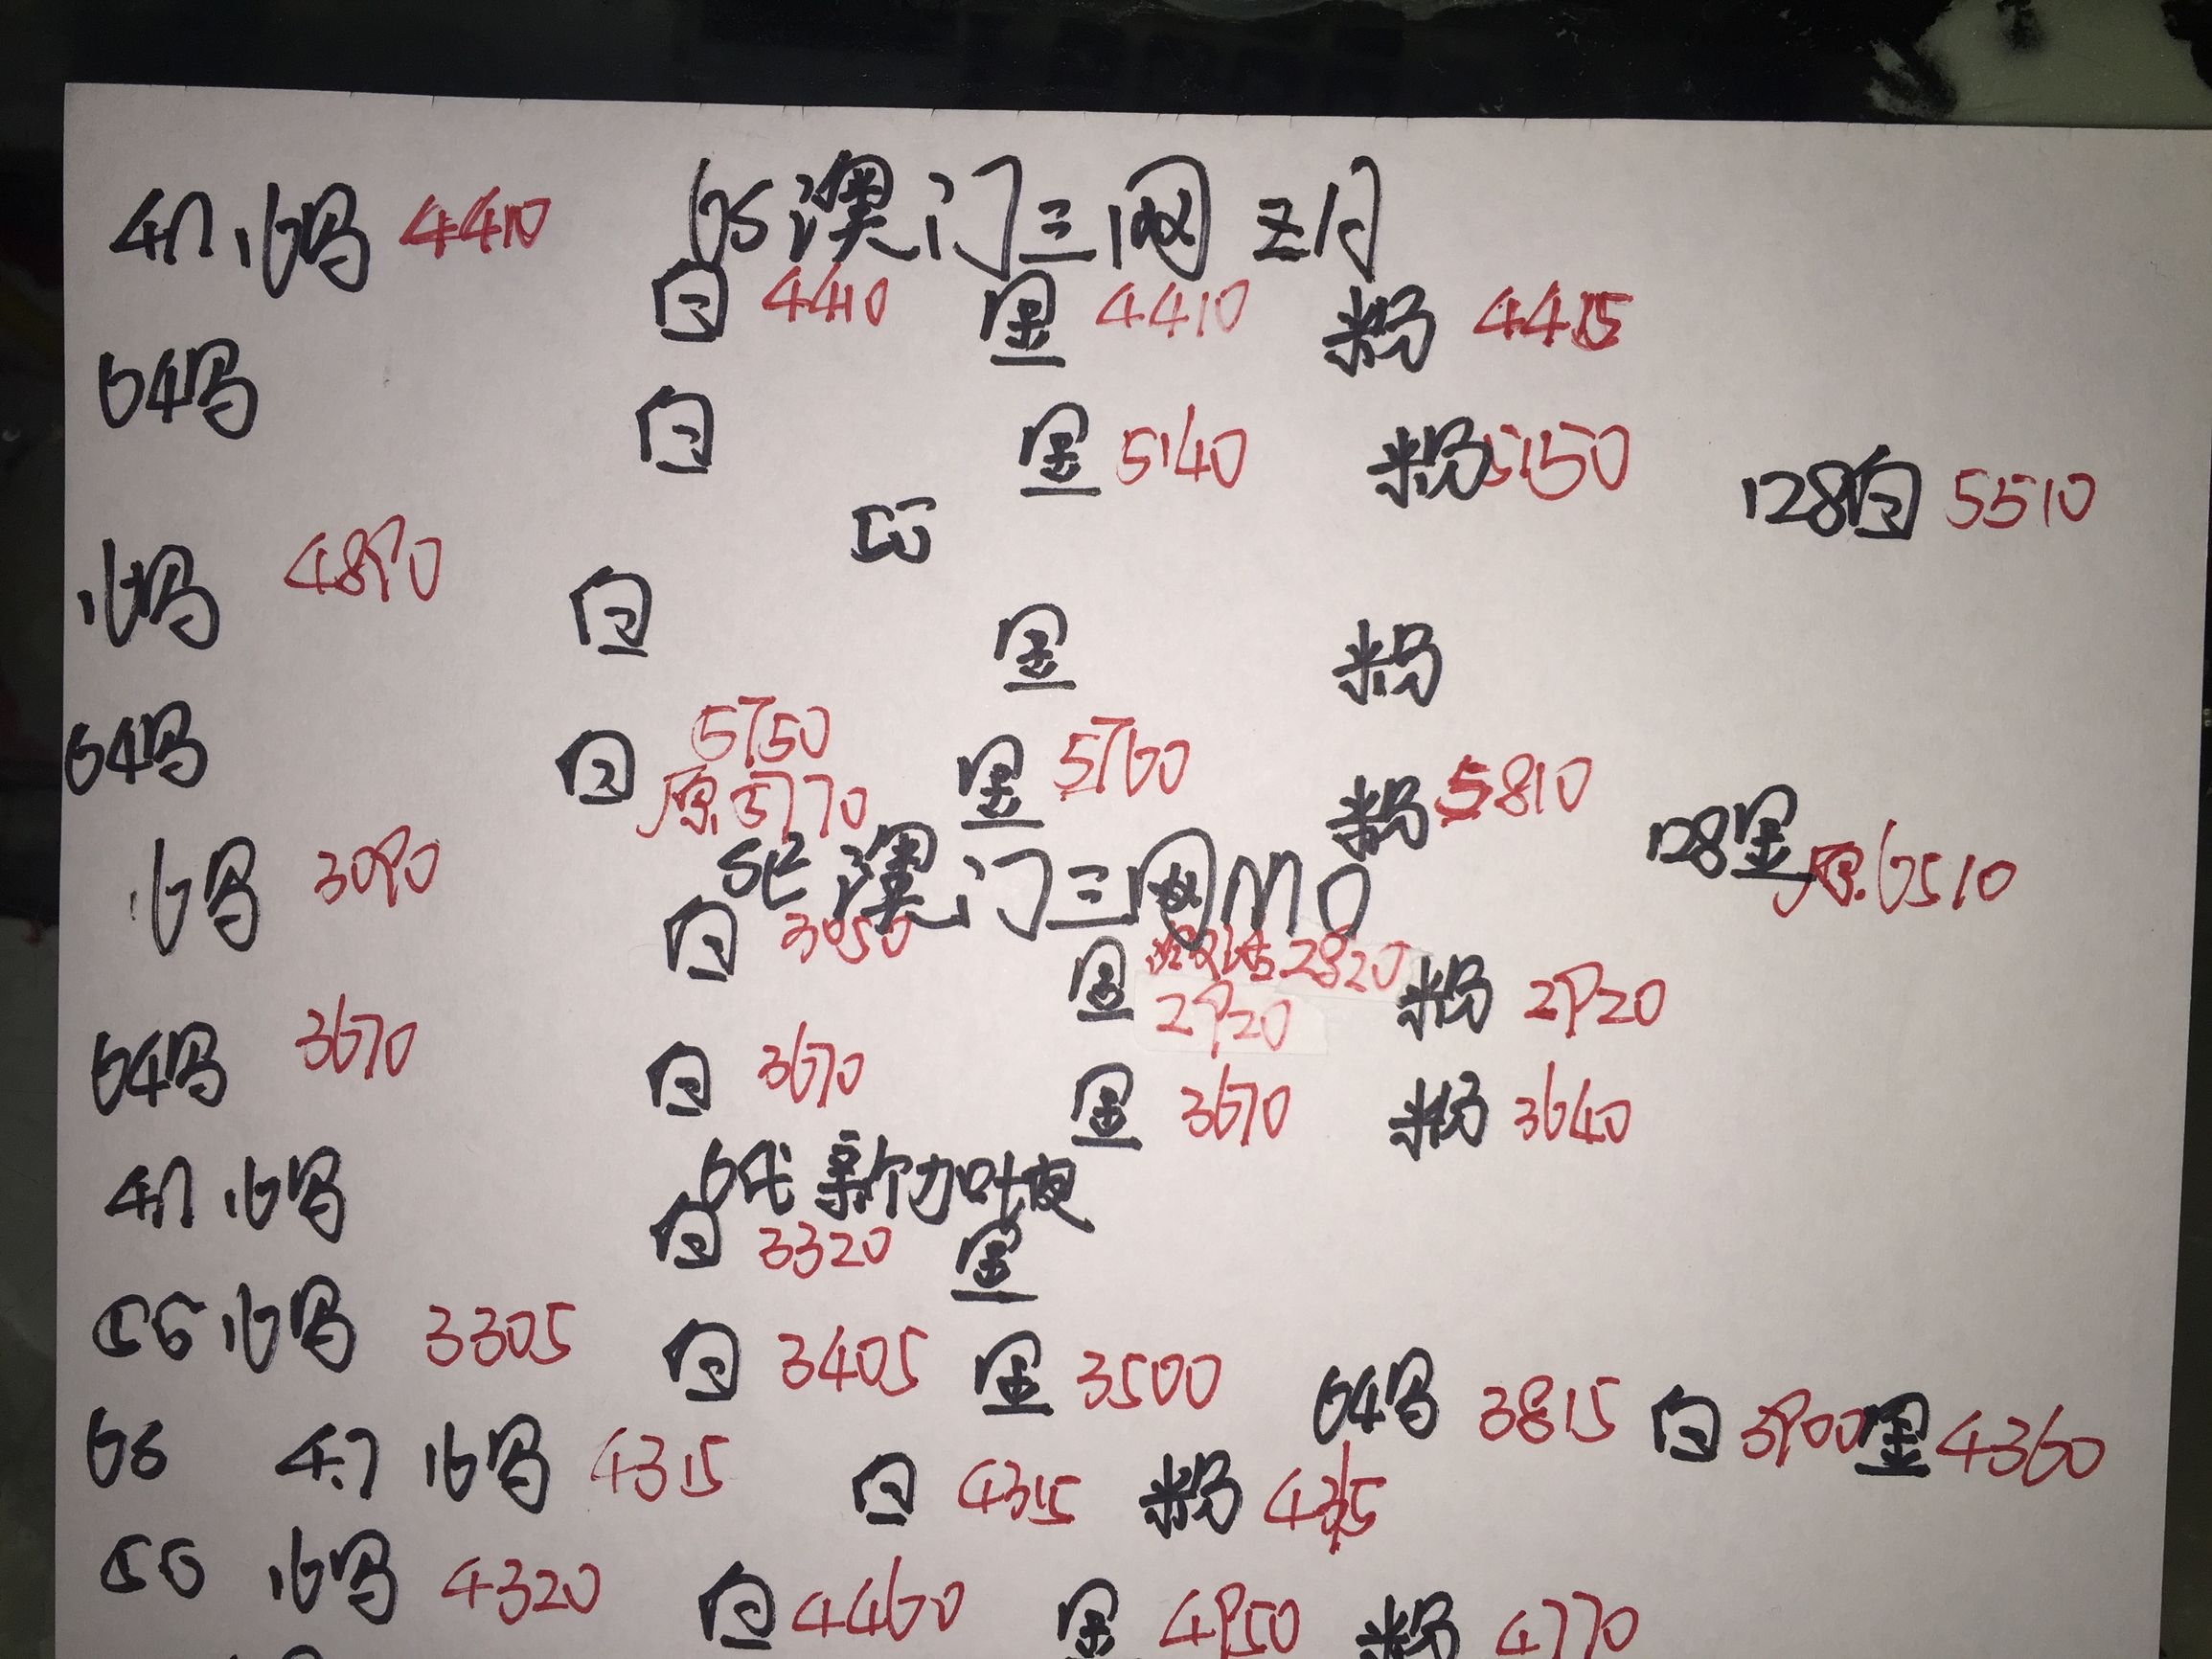 6S澳门三网 Z/A
4.7 16妈 4410 白 4410 金 4410 粉 4415
64妈 白 金 5140 粉 5150 128白 5510
5.5
16妈 4890 白 金 粉
64妈 白 5750 原5770 金 5760 粉 5810 128金 原.6510
SE澳门三网 M0
16妈 3090 白 3050 金 2820 2920 粉 2920
64妈 3670 白 3670 金 3670 粉 3640
6代 新加坡
4.7 16妈 白 3320 金
16妈 3305 白 3405 金 3500 64妈 3815 白 3900 金 4360
6S 4.7 16妈 4315 白 4315 粉 4315
16妈 4320 白 4460 金 4950 粉 4770